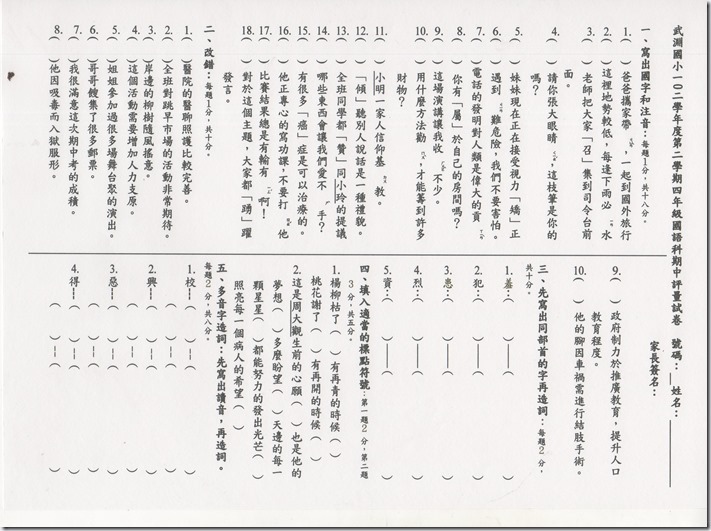 武淵國小一○二學年度第二學期四年級國語科期中評量試卷 號碼： 姓名：
家長簽名：
一、寫出國字和注音：每題1分，共十八分。
1.（ ）爸爸攜家帶 ，一起到國外旅行
2.（ ）這裡地勢較低，每逢下雨必 水
3.（ ）老師把大家「召」集到司令台前
面。
4.（ ）請你張大眼睛 ，這枝筆是你的
嗎？
5.（ ）妹妹現在正在接受視力「矯」正
6.（ ）遇到 難危險，我們不要害怕。
7.（ ）電話的發明對人類是偉大的貢
8.（ ）你有「屬」於自己的房間嗎？
9.（ ）這場演講讓我收 不少。
10.（ ）用什麼方法勸 ，才能籌到許多
財物？
11.（ ）小明一家人信仰基 教。
12.（ ）「傾」聽別人說話是一種禮貌。
13.（ ）全班同學都「贊」同小玲的提議
14.（ ）哪些東西會讓我們愛不 手？
15.（ ）有很多「癌」症是可以治療的。
16.（ ）他正專心的寫功課，不要打 他
17.（ ）比賽結果總是有輸有 啊！
18.（ ）對於這個主題，大家都「踴」躍
發言。
二、改錯：每題1分，共十分。
1.（ ）醫院的醫聊照護比較完善。
2.（ ）全班對跳早市場的活動非常期待。
3.（ ）岸邊的柳樹隨風搖意。
4.（ ）這個活動需要增加人力支原。
5.（ ）姐姐參加過很多場舞台棸的演出。
6.（ ）哥哥餿集了很多郵票。
7.（ ）我很滿意這次期中考的成積。
8.（ ）他因吸毒而入獄服形。
9.（ ）政府制力於推廣教育，提升人口
教育程度。
10.（ ）他的腳因車禍需進行結肢手術。
三、先寫出同部首的字再造詞：每題2分，
共十分。
1.羞：（ ）——（ ）
2.犯：（ ）——（ ）
3.惠：（ ）——（ ）
4.烈：（ ）——（ ）
5.資：（ ）——（ ）
四、填入適當的標點符號：第一題2分，第二題
3分，共五分。
1.楊柳枯了（ ）有再青的時候（ ）
桃花謝了（ ）有再開的時候（ ）
2.這是周大觀生前的心願（ ）也是他的
夢想（ ）多麼盼望（ ）天邊的每一
顆星星（ ）都能努力的發出光芒（ ）
照亮每一個病人的希望（ ）
五、多音字造詞：先寫出讀音，再造詞。
每題2分，共八分。
1.校--（ ）--（ ）
（ ）--（ ）
2.興--（ ）--（ ）
（ ）--（ ）
3.惡--（ ）--（ ）
（ ）--（ ）
4.得--（ ）--（ ）
（ ）--（ ）